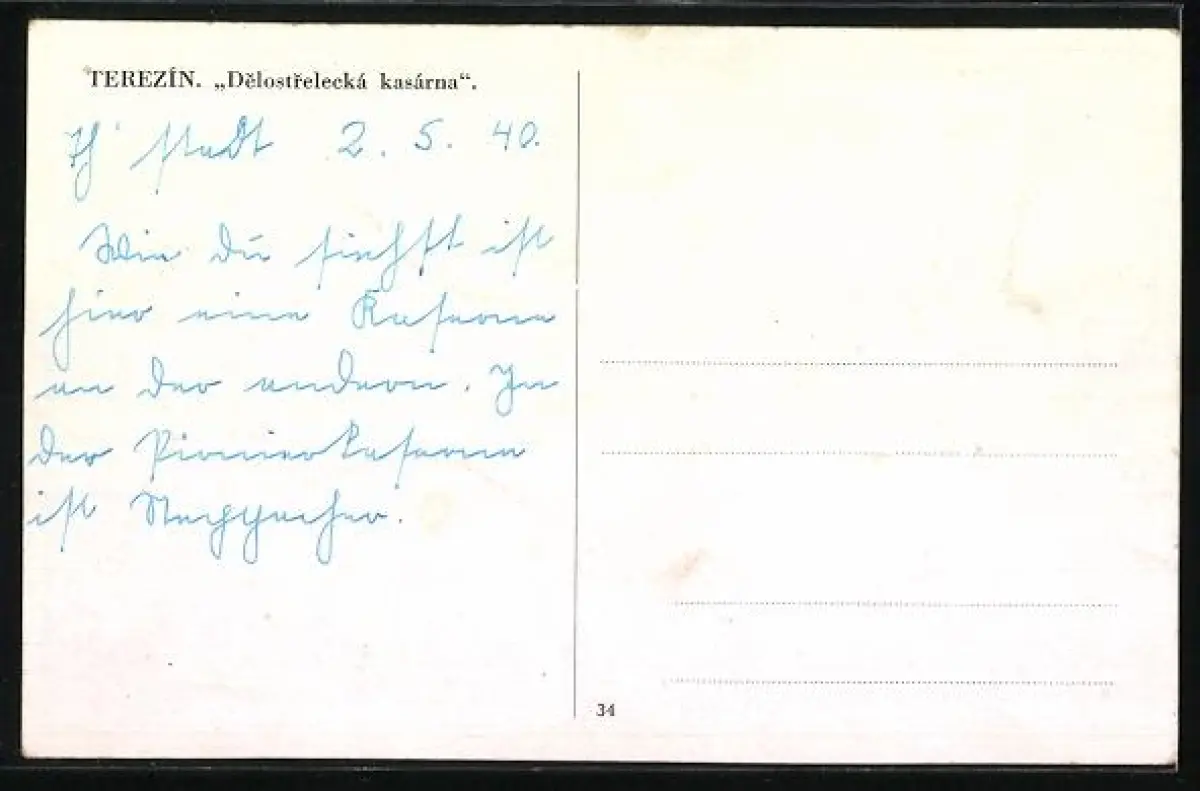 TEREZÍN. „Dělostřelecká kasárna“.
Th' stadt 2. 5. 40.
Wie du siehst ist
hier eine Kaserne
an der andern. In
der Pionierkaserne
ist
34